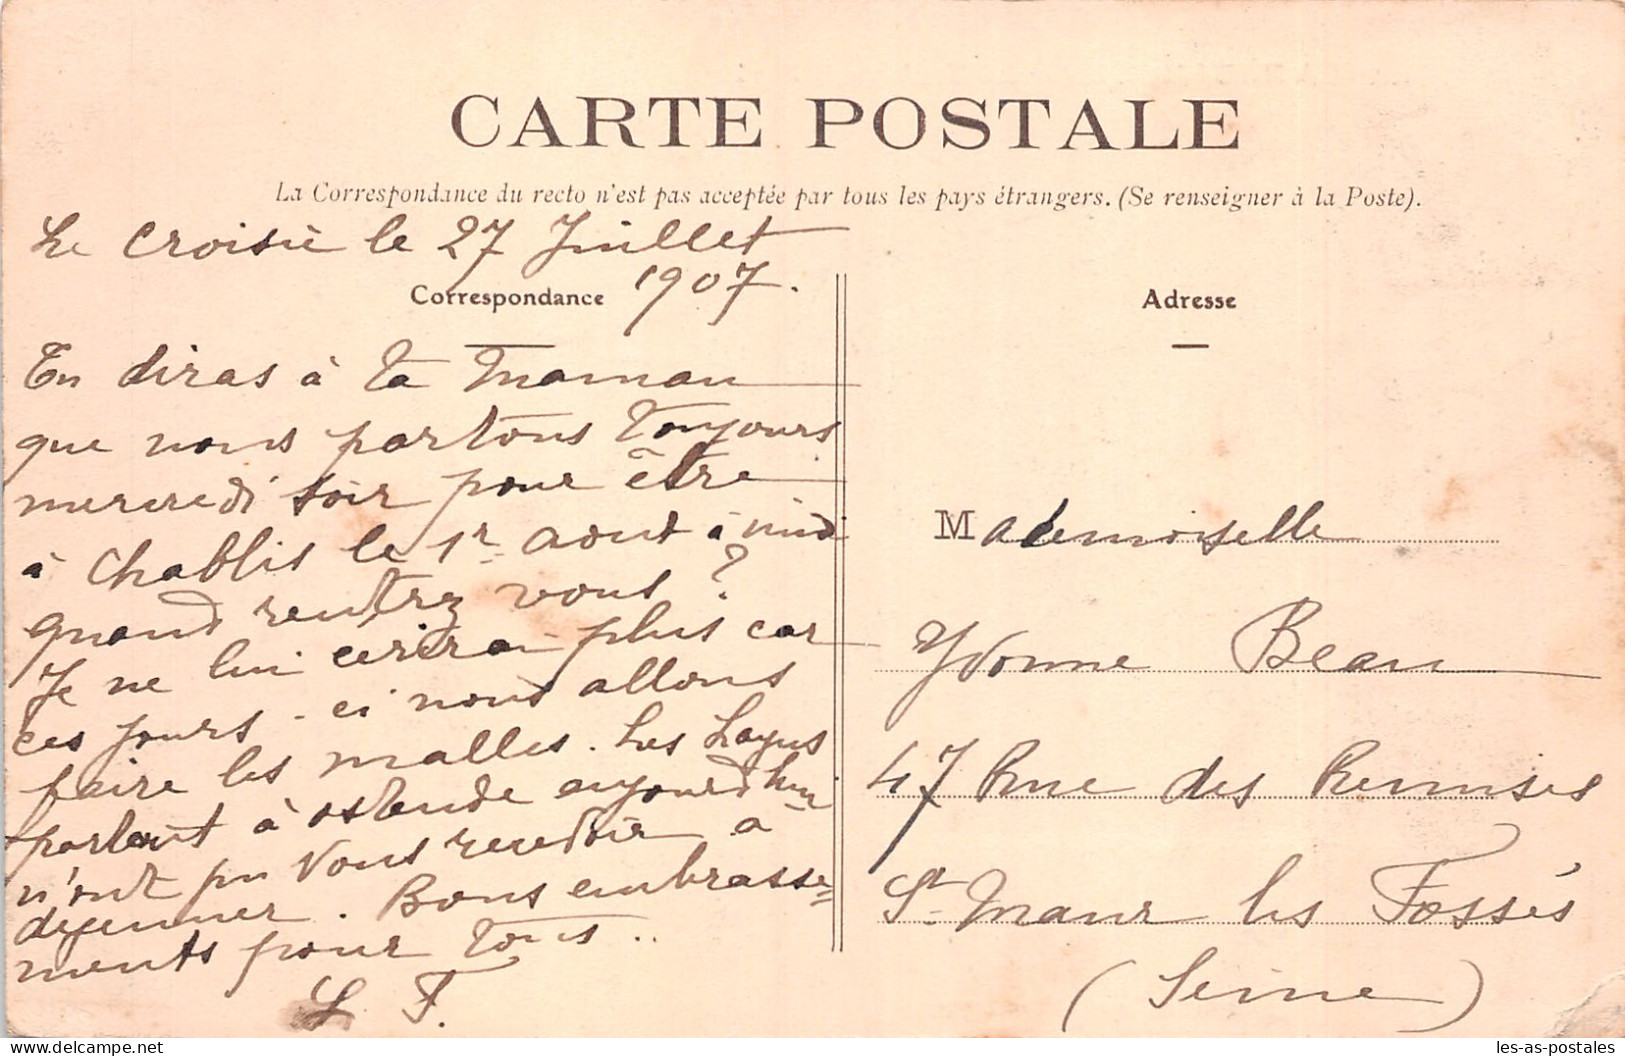 CARTE POSTALE
La Correspondance du recto n'est pas acceptée par tous les pays étrangers. (Se renseigner à la Poste).
Le Croisic le 27 Juillet
1907.
Correspondance
Tu diras à ta maman
que nous partons toujours
mercredi soir pour être
à Chablis le 1r aout à midi
quand rentrez vous ?
Je ne lui écrirai plus car
ces jours-ci nous allons
faire les malles. Les
partent à ostende aujourd'hui
n'ont pu vous recevoir à
dejeuner. Bons embrasse=
ments pour tous..
L. F.
Adresse
Mademoiselle
Yvonne Beau
47 Rue des Remises
St Maur les Fossés
(Seine)
les-as-postales